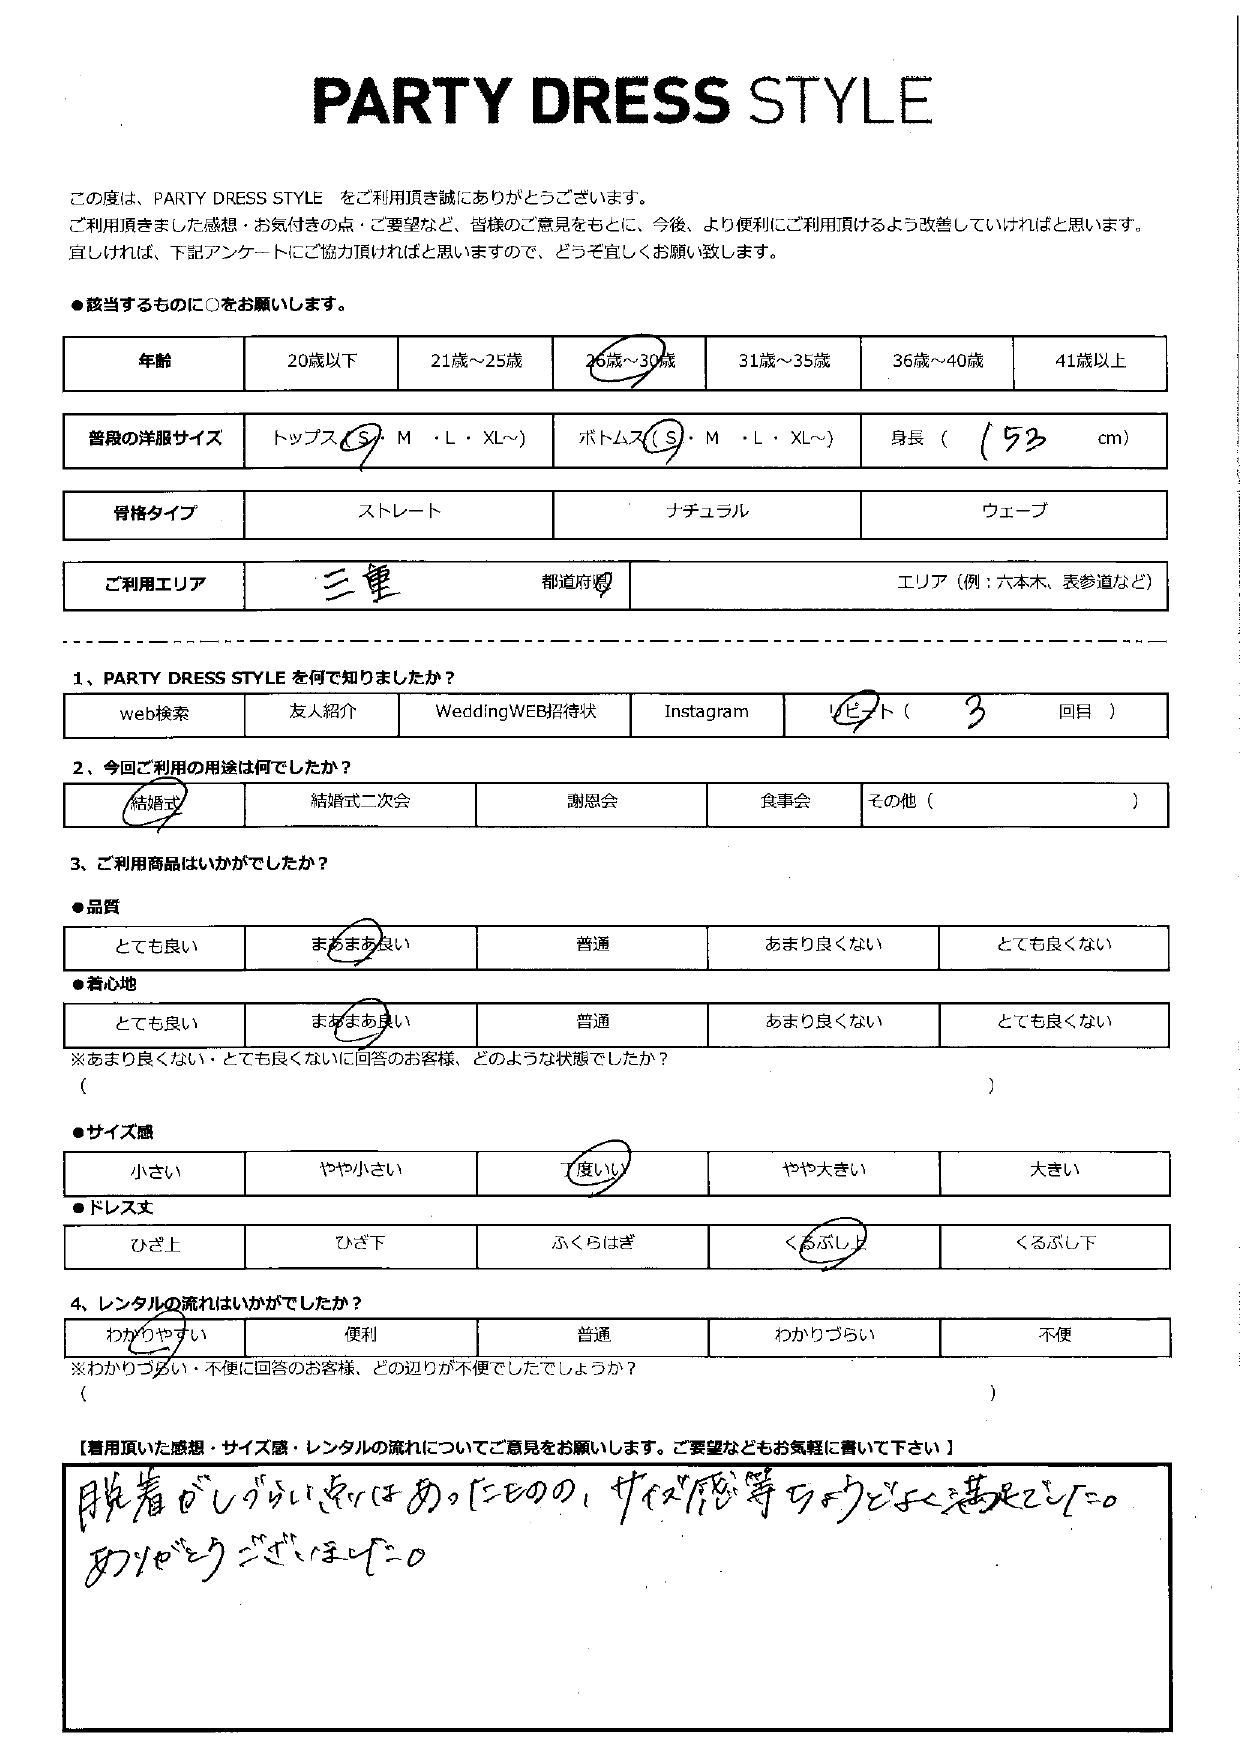 PARTY DRESS STYLE
この度は、PARTY DRESS STYLE をご利用頂き誠にありがとうございます。
ご利用頂きました感想・お気付きの点・ご要望など、皆様のご意見をもとに、今後、より便利にご利用頂けるよう改善していければと思います。
宜しければ、下記アンケートにご協力頂ければと思いますので、どうぞ宜しくお願い致します。
●該当するものに○をお願いします。
年齢 20歳以下 21歳～25歳 26歳～30歳 31歳～35歳 36歳～40歳 41歳以上
普段の洋服サイズ トップス（S・ M ・L ・ XL～) ボトムス（ S ・ M ・L ・ XL～) 身長 （ 153 cm）
骨格タイプ ストレート ナチュラル ウェーブ
ご利用エリア 三重 都道府県 エリア（例：六本木、表参道など）
1、PARTY DRESS STYLE を何で知りましたか？
web検索 友人紹介 WeddingWEB招待状 Instagram リピート（ 3 回目 ）
2、今回ご利用の用途は何でしたか？
結婚式 結婚式二次会 謝恩会 食事会 その他（ ）
3、ご利用商品はいかがでしたか？
●品質
とても良い まあまあ良い 普通 あまり良くない とても良くない
●着心地
とても良い まあまあ良い 普通 あまり良くない とても良くない
※あまり良くない・とても良くないに回答のお客様、どのような状態でしたか？
（ ）
●サイズ感
小さい やや小さい 丁度いい やや大きい 大きい
●ドレス丈
ひざ上 ひざ下 ふくらはぎ くるぶし上 くるぶし下
4、レンタルの流れはいかがでしたか？
わかりやすい 便利 普通 わかりづらい 不便
※わかりづらい・不便に回答のお客様、どの辺りが不便でしたでしょうか？
（ ）
【着用頂いた感想・サイズ感・レンタルの流れについてご意見をお願いします。ご要望などもお気軽に書いて下さい 】
脱着がしづらい点はあったものの、サイズ感等ちょうどよく満足でした。
ありがとうございました。